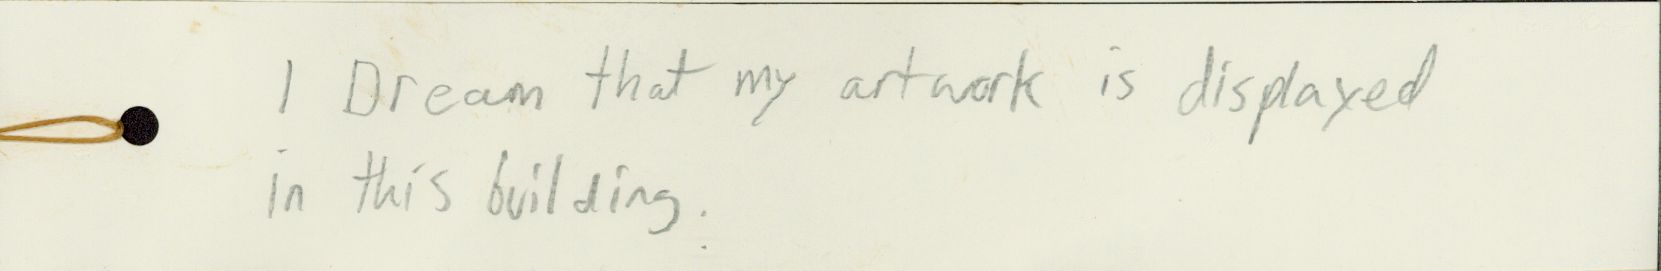 I Dream that my artwork is displayed
in this building.